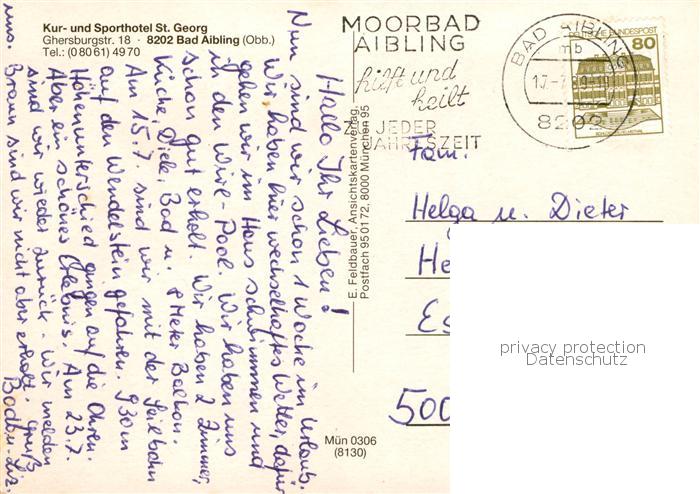 Kur- und Sporthotel St. Georg
Ghersburgstr. 18 · 8202 Bad Aibling (Obb.)
Tel.: (0 80 61) 49 70
Hallo Ihr Lieben!
Nun sind wir schon 1 Woche im Urlaub.
Wir haben hier wechselhaftes Wetter, dafür
gehen wir im Haus schwimmen und
in den Wirl-Pool. Wir haben uns
schon gut erholt. Wir haben 2 Zimmer,
Küche Diele, Bad u. 8 Meter Balkon.
Am 15.7. sind wir mit der Seilbahn
auf den Wendelstein gefahren. 930 m
Höhenunterschied gingen auf die Ohren.
Aber ein schönes Erlebnis. Am 23.7.
sind wir wieder zurück. Wir melden
uns.
Braun sind wir nicht aber erholt. Gruß
Bodo u. Liz.
E. Feldbauer, Ansichtskartenverlag,
Postfach 95 01 72, 8000 München 95
MOORBAD
AIBLING
hilft und
heilt
ZU JEDER
JAHRESZEIT
BAD AIBLING
mb
8202
DEUTSCHE BUNDESPOST
80
Fam.
Helga u. Dieter
He
Es
500
privacy protection
Datenschutz
Mün 0306
(8130)